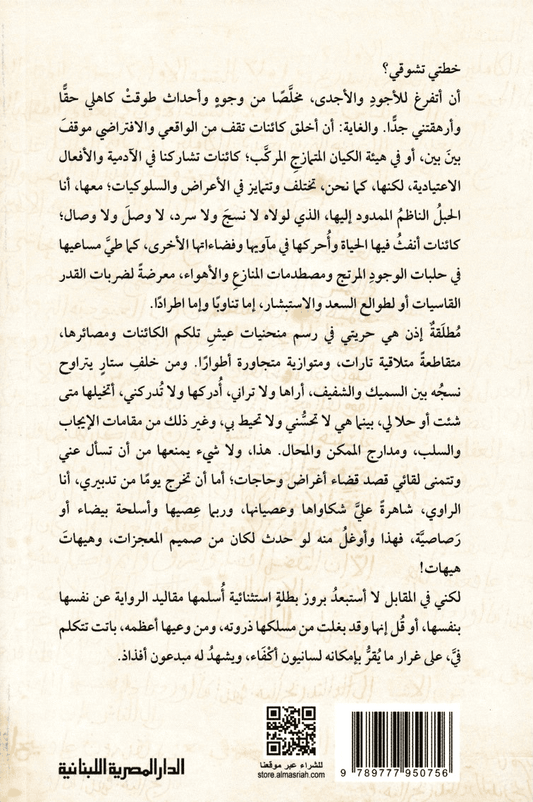 خطتي تشوقي؟
أن أتفرغ للأجودِ والأجدى، مخلَّصًا من وجوهٍ وأحداث طوقتْ كاهلي حقًّا
وأرهقتني جدًّا. والغاية: أن أخلق كائنات تقف من الواقعي والافتراضي موقفَ
بينَ بين، أو في هيئة الكيان المتمازجِ المركَّب؛ كائنات تشاركنا في الآدمية والأفعال
الاعتيادية، لكنها، كما نحن، تختلف وتتمايز في الأعراض والسلوكيات؛ معها، أنا
الحبلُ الناظمُ الممدود إليها، الذي لولاه لا نسجَ ولا سرد، لا وصلَ ولا وصال؛
كائنات أنفثُ فيها الحياة وأُحركها في مآويها وفضاءاتها الأخرى، كما طيَّ مساعيها
في حلبات الوجودِ المرتج ومصطدمات المنازعِ والأهواء، معرضةً لضربات القدر
القاسيات أو لطوالع السعد والاستبشار، إما تناوبًا وإما اطرادًا.
مُطلَقةٌ إذن هي حريتي في رسم منحنيات عيشِ تلكم الكائنات ومصائرها،
متقاطعةً متلاقية تارات، ومتوازية متجاورة أطوارًا. ومن خلفِ ستارٍ يتراوح
نسجُه بين السميك والشفيف، أراها ولا تراني، أُدركها ولا تُدركني، أتخيلها متى
شئت أو حلا لي، بينما هي لا تحسُّني ولا تحيط بي، وغير ذلك من مقامات الإيجاب
والسلب، ومدارج الممكن والمحال. هذا، ولا شيء يمنعها من أن تسأل عني
وتتمنى لقائي قصد قضاء أغراض وحاجات؛ أما أن تخرج يومًا من تدبيري، أنا
الراوي، شاهرةً عليَّ شكاواها وعصيانها، وربما عِصيها وأسلحة بيضاء أو
رَصاصيَّة، فهذا وأوغلُ منه لو حدث لكان من صميم المعجزات، وهيهاتَ
هيهات!
لكني في المقابل لا أستبعدُ بروز بطلةٍ استثنائية أُسلمها مقاليد الرواية عن نفسها
بنفسها، أو قُل إنها وقد بلغت من مسلكها ذروته، ومن وعيها أعظمه، باتت تتكلم
فيَّ، على غرار ما يُقرُّ بإمكانه لسانيون أكْفَاء، ويشهدُ له مبدعون أفذاذ.
الدار المصرية اللبنانية
للشراء عبر موقعنا
store.almasriah.com
9 789777 950756